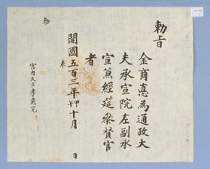 勅旨
金商悳為通政大
夫承宣院左副承
宣兼經筵參贊官
者
開國五百三年十月 日
勅
宮內大臣李載冕